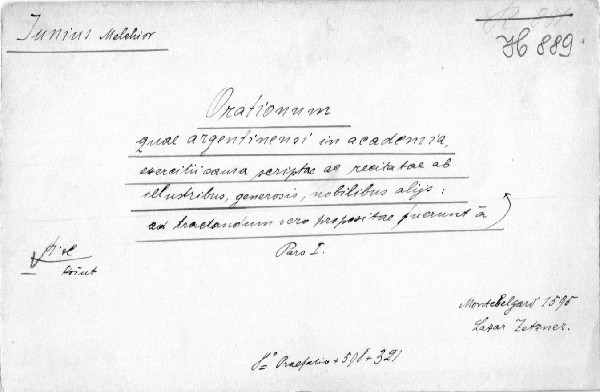 Junius Melchior
H 889
Orationum
quae argentinensi in academia,
exercitii causa scriptae ac recitatae ab
illustribus, generosis, nobilibus alijs:
ad tractandum vero propositae fuerunt à
Pars I.
Montbelgard 1595
Lazar Zetzner.
8° Praefatio + 598 + 321